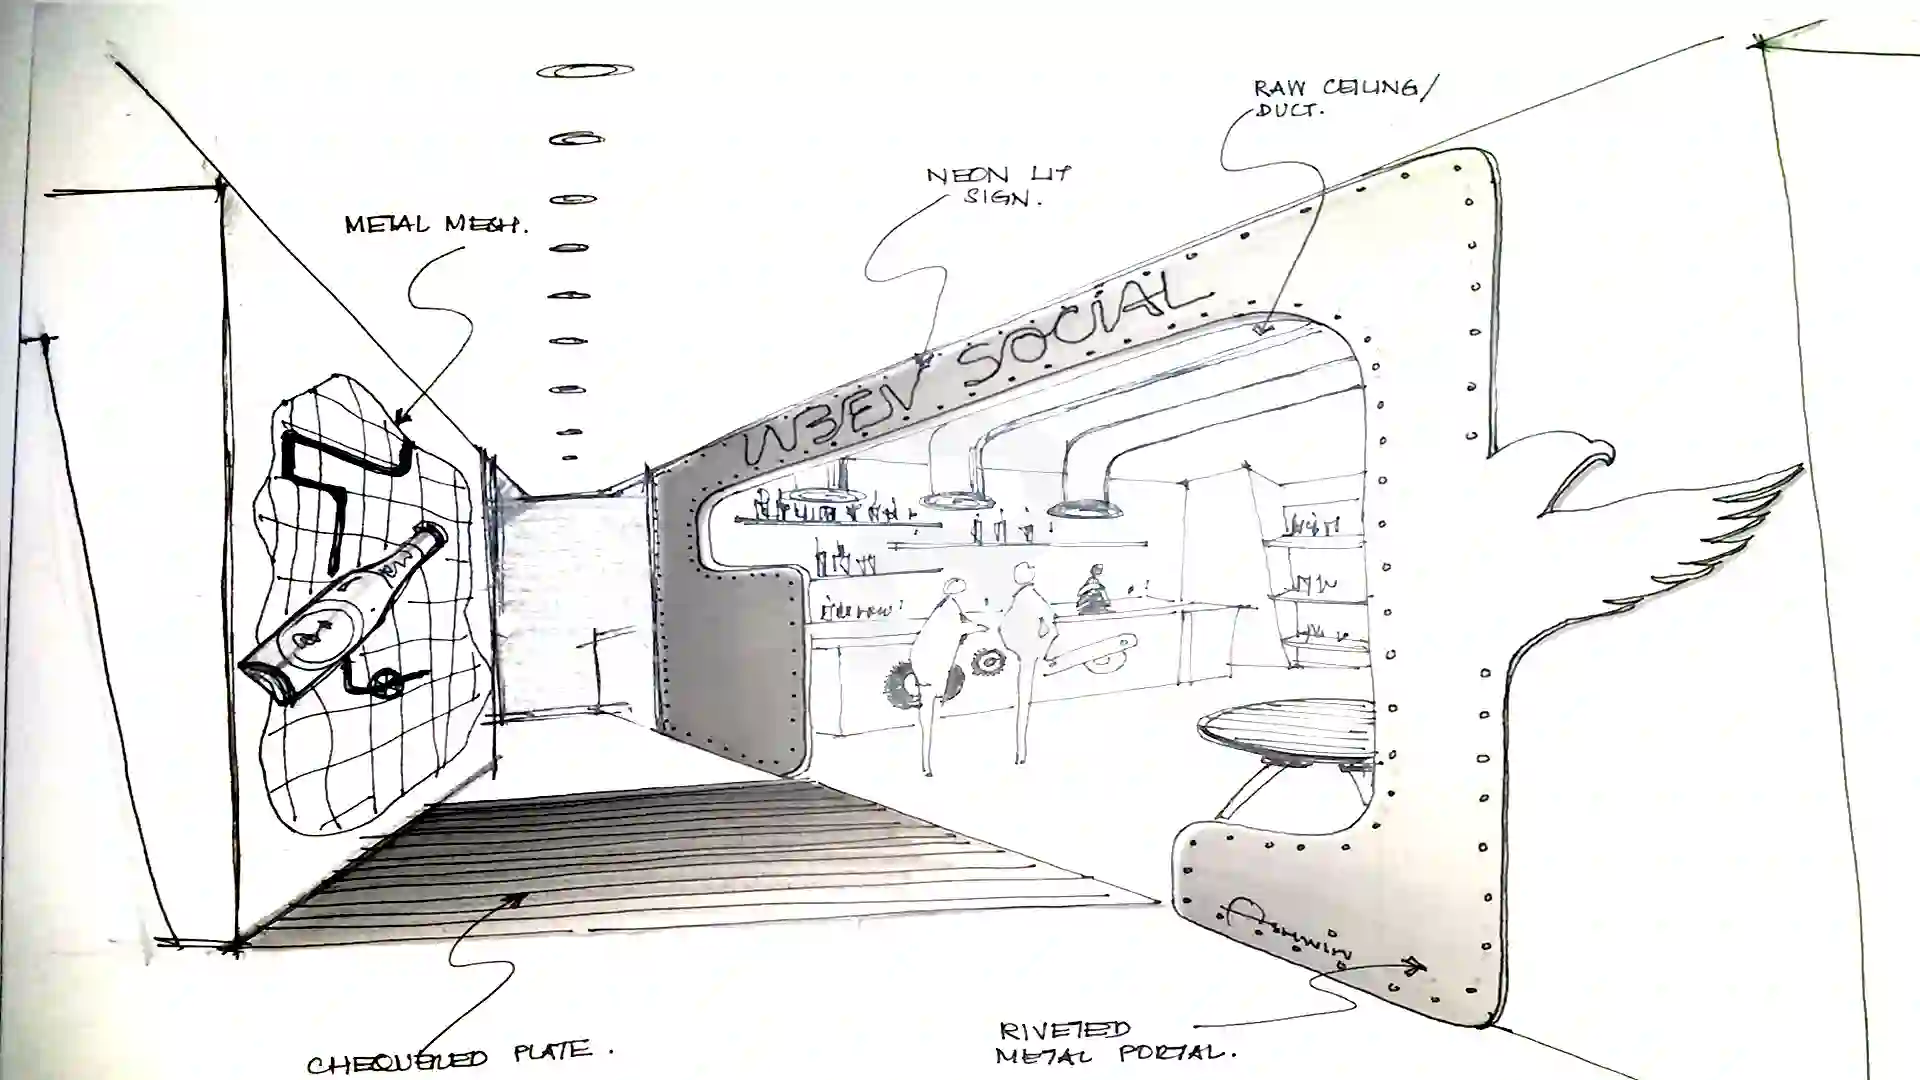 RAW CEILING/
DUCT.
NEON LIT
SIGN.
METAL MESH.
W3EV SOCIAL
Ashwin
CHEQUERED PLATE.
RIVETED
METAL PORTAL.